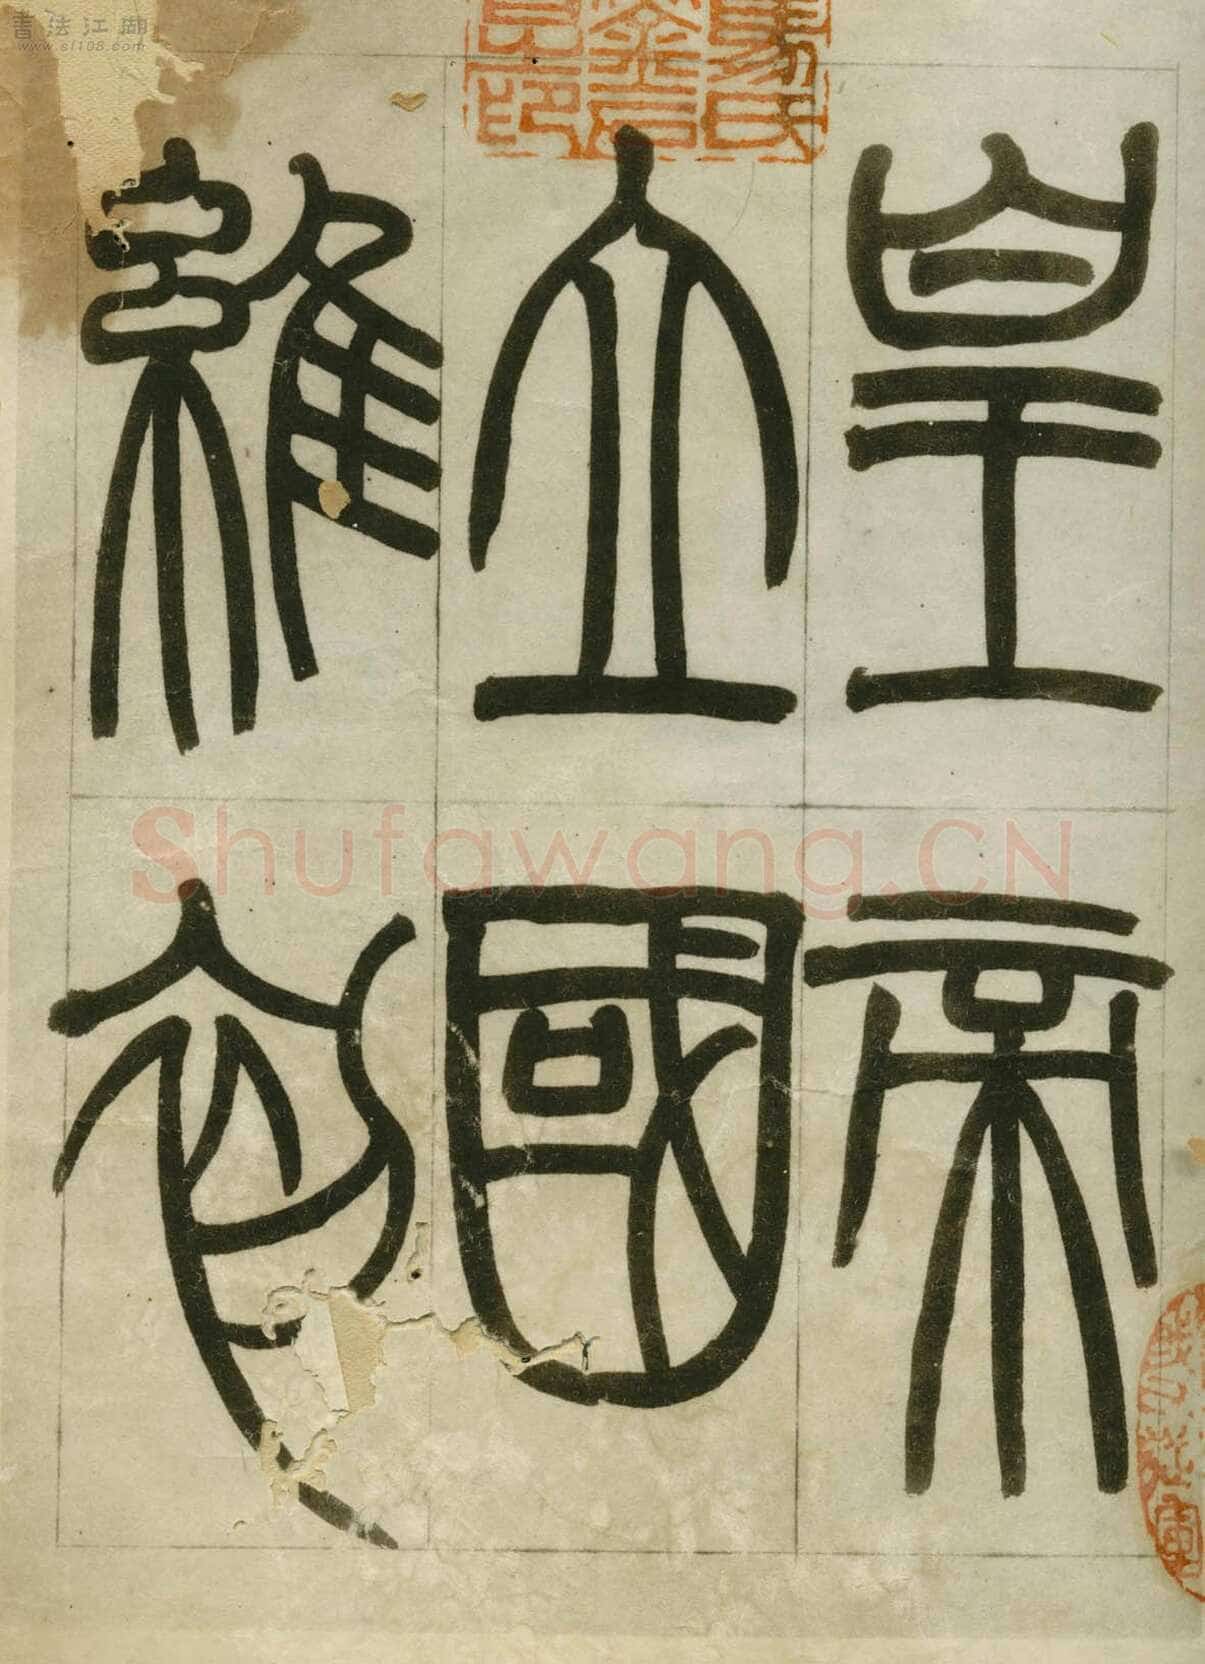 皇帝
立國
維初
書法江湖
www.sf108.com
Shufawang.CN